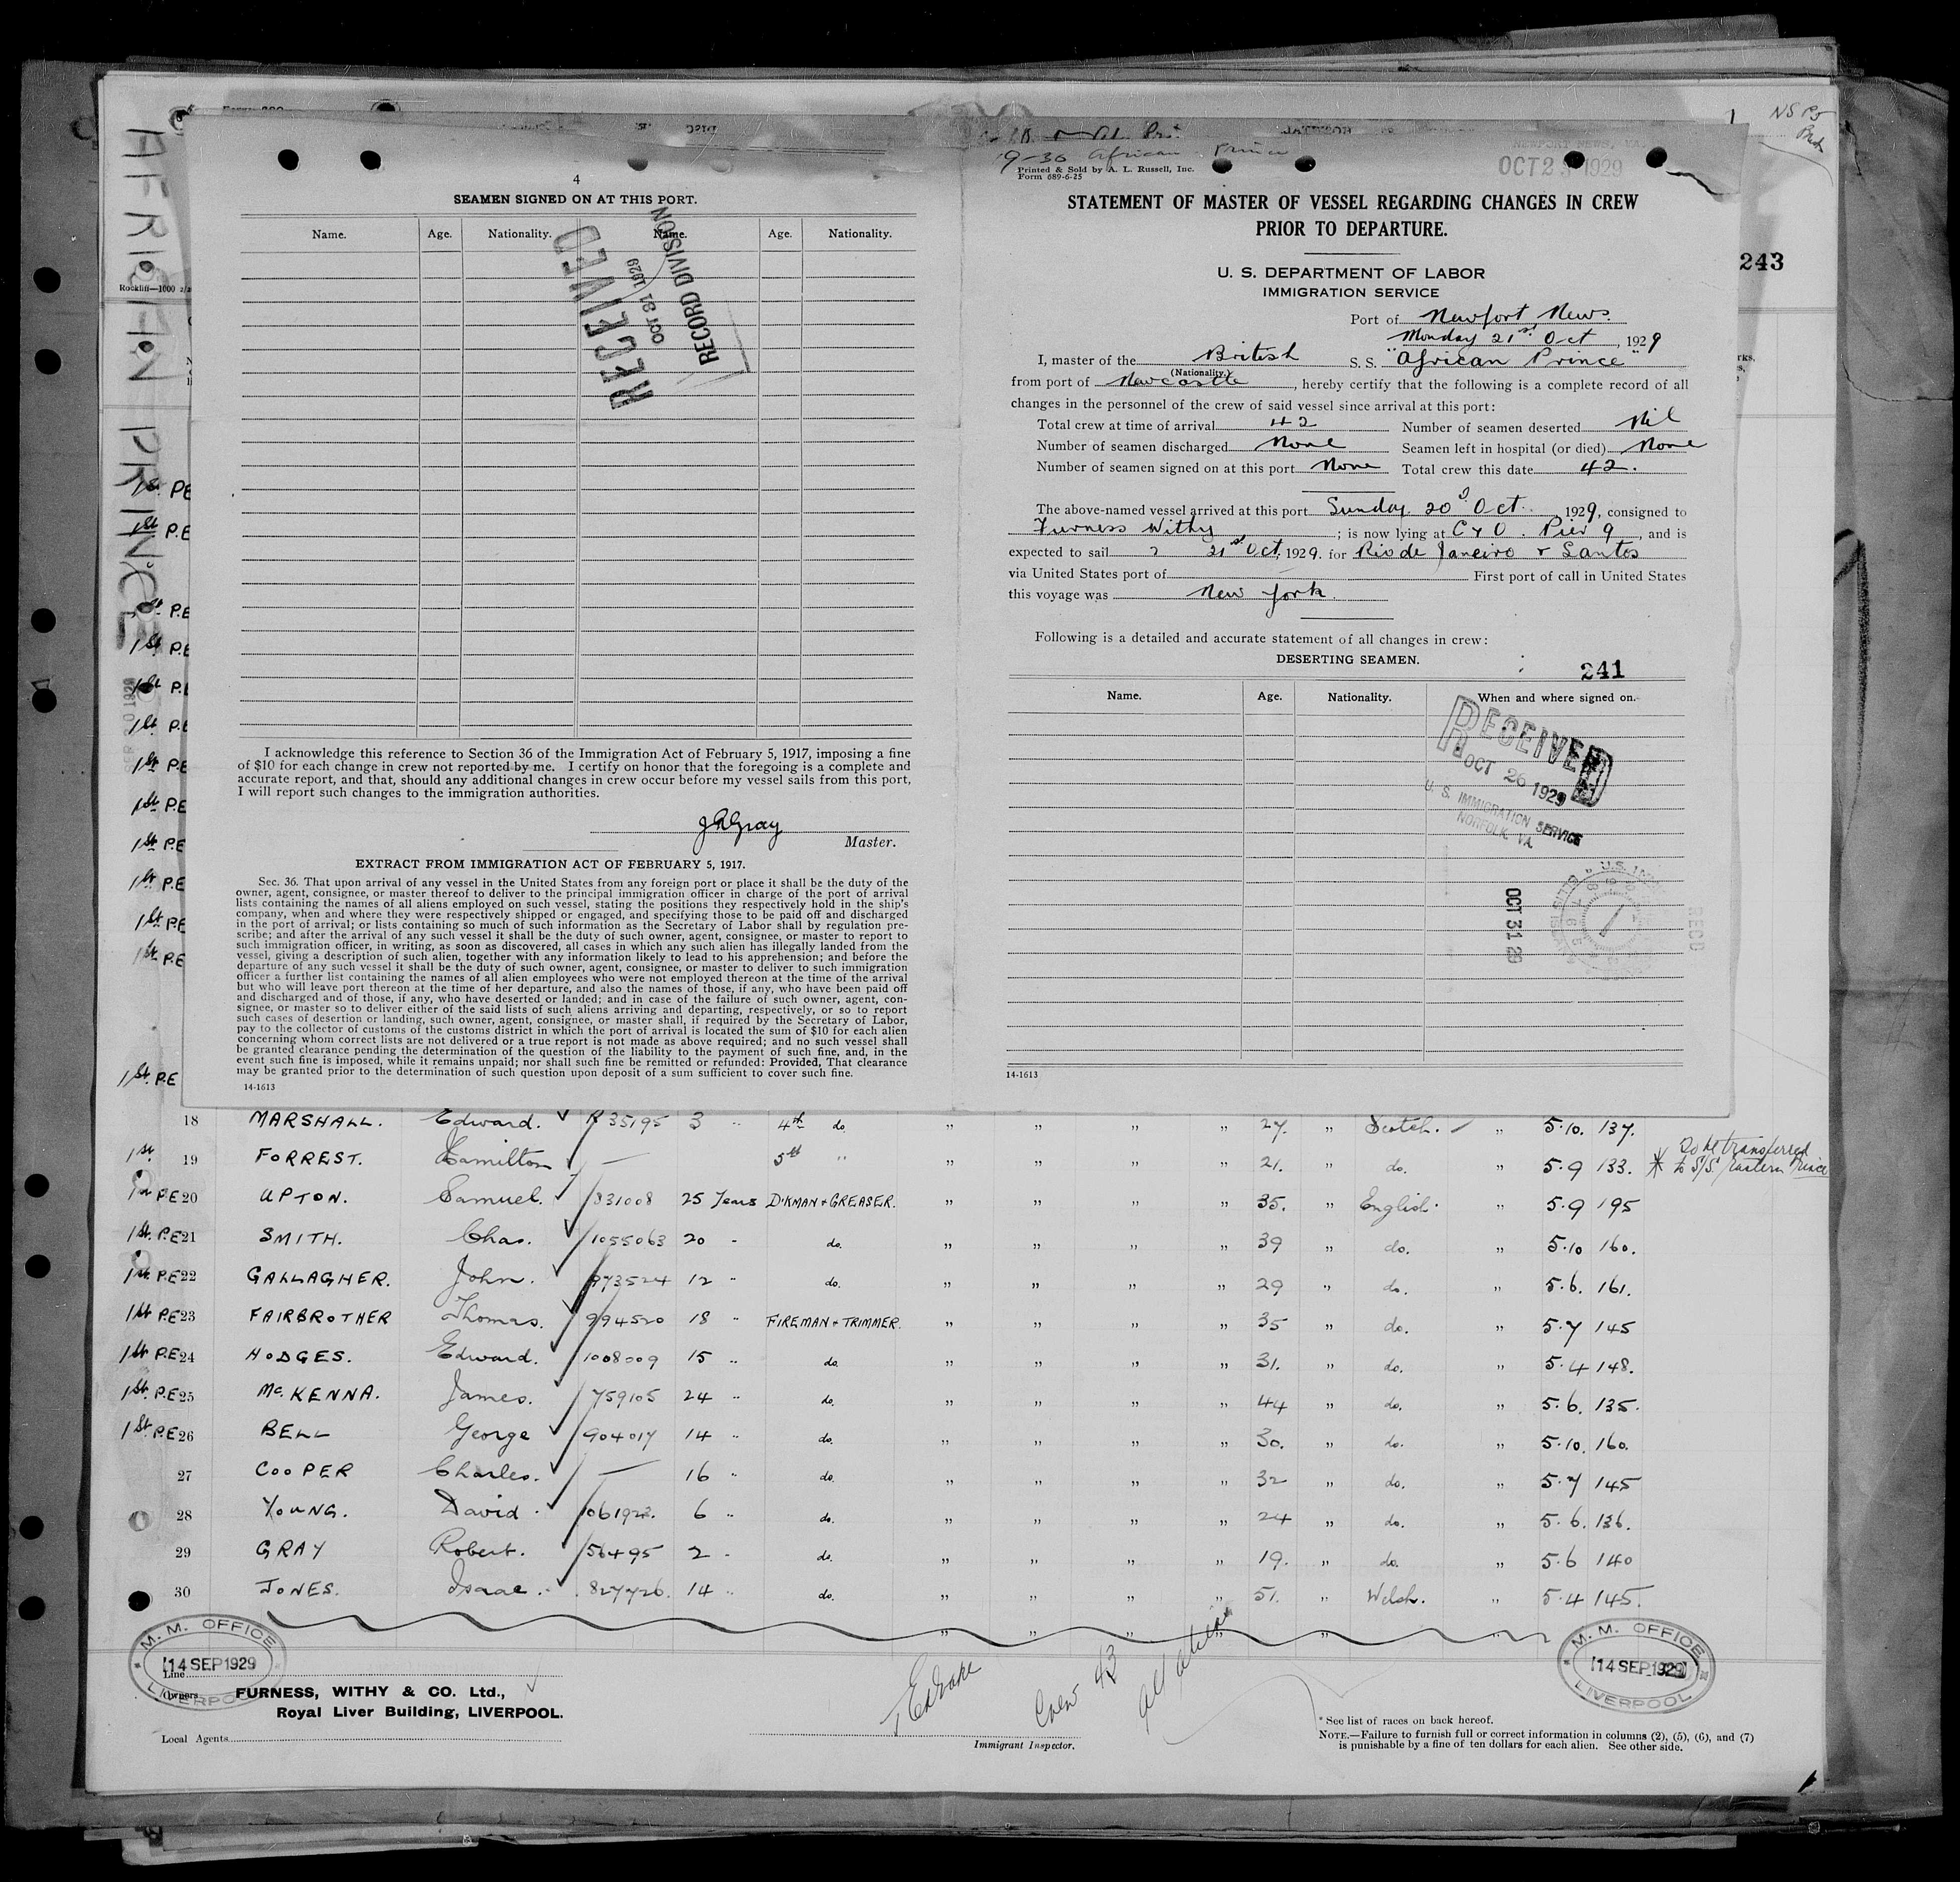 AFRICAN PRINCE
4
SEAMEN SIGNED ON AT THIS PORT.
Name. Age. Nationality. Name. Age. Nationality.
RECEIVED
OCT 31 1929
RECORD DIVISION
I acknowledge this reference to Section 36 of the Immigration Act of February 5, 1917, imposing a fine
of $10 for each change in crew not reported by me. I certify on honor that the foregoing is a complete and
accurate report, and that, should any additional changes in crew occur before my vessel sails from this port,
I will report such changes to the immigration authorities.
Gray
Master.
EXTRACT FROM IMMIGRATION ACT OF FEBRUARY 5, 1917.
Sec. 36. That upon arrival of any vessel in the United States from any foreign port or place it shall be the duty of the
owner, agent, consignee, or master thereof to deliver to the principal immigration officer in charge of the port of arrival
lists containing the names of all aliens employed on such vessel, stating the positions they respectively hold in the ship's
company, when and where they were respectively shipped or engaged, and specifying those to be paid off and discharged
in the port of arrival; or lists containing so much of such information as the Secretary of Labor shall by regulation pre-
scribe; and after the arrival of any such vessel it shall be the duty of such owner, agent, consignee, or master to report to
such immigration officer, in writing, as soon as discovered, all cases in which any such alien has illegally landed from the
vessel, giving a description of such alien, together with any information likely to lead to his apprehension; and before the
departure of any such vessel it shall be the duty of such owner, agent, consignee, or master to deliver to such immigration
officer a further list containing the names of all alien employees who were not employed thereon at the time of the arrival
but who will leave port thereon at the time of her departure, and also the names of those, if any, who have been paid off
and discharged and of those, if any, who have deserted or landed; and in case of the failure of such owner, agent, con-
signee, or master so to deliver either of the said lists of such aliens arriving and departing, respectively, or so to report
such cases of desertion or landing, such owner, agent, consignee, or master shall, if required by the Secretary of Labor,
pay to the collector of customs of the customs district in which the port of arrival is located the sum of $10 for each alien
concerning whom correct lists are not delivered or a true report is not made as above required; and no such vessel shall
be granted clearance pending the determination of the question of the liability to the payment of such fine, and, in the
event such fine is imposed, while it remains unpaid; nor shall such fine be remitted or refunded: Provided, That clearance
may be granted prior to the determination of such question upon deposit of a sum sufficient to cover such fine.
14-1613
9-30 African Prince
Printed & Sold by A. L. Russell, Inc.
Form 689-6-25
STATEMENT OF MASTER OF VESSEL REGARDING CHANGES IN CREW
PRIOR TO DEPARTURE.
U. S. DEPARTMENT OF LABOR
IMMIGRATION SERVICE
Port of Newport News.
Monday 21st Oct, 1929
I, master of the British S. S. "African Prince"
(Nationality.)
from port of Newcastle, hereby certify that the following is a complete record of all
changes in the personnel of the crew of said vessel since arrival at this port:
Total crew at time of arrival 42 Number of seamen deserted Nil
Number of seamen discharged None Seamen left in hospital (or died) None
Number of seamen signed on at this port None Total crew this date 42.
The above-named vessel arrived at this port Sunday 20 Oct. 1929, consigned to
Furness Withy; is now lying at C & O. Pier 9, and is
expected to sail 21st Oct, 1929. for Rio de Janeiro & Santos
via United States port of First port of call in United States
this voyage was New York.
Following is a detailed and accurate statement of all changes in crew:
DESERTING SEAMEN.
241
Name. Age. Nationality. When and where signed on.
RECEIVED
OCT 26 1929
U. S. IMMIGRATION SERVICE
NORFOLK, VA.
OCT 31 29
RECD
14-1613
243
18 MARSHALL. Edward. R 35195 3 " 4th do " " " " 27. " Scotch. " 5.10. 137.
1st 19 FORREST. Hamilton — 5th " " " " " 21. " do. " 5.9 133. * To be transferred to S/S Eastern Prince
P.E 20 UPTON. Samuel. 831008 25 Years D'KMAN & GREASER. " " " " 35. " English. " 5.9 195
1st. P.E 21 SMITH. Chas. 1055063 20 " do. " " " " 39 " do. " 5.10 160.
1st P.E 22 GALLAGHER. John. 973524 12 " do. " " " " 29 " do. " 5.6. 161.
1st P.E 23 FAIRBROTHER Thomas. 994520 18 " FIREMAN & TRIMMER. " " " " 35 " do. " 5.7 145
1st P.E 24 HODGES. Edward. 1008009 15 " do. " " " " 31. " do. " 5.4 148.
1st. P.E 25 McKENNA. James. 759105 24 " do. " " " " 44 " do. " 5.6. 135.
1st P.E 26 BELL George 904017 14 " do. " " " " 30. " do. " 5.10. 160.
27 COOPER Charles. — 16 " do. " " " " 32 " do. " 5.7 145
28 YOUNG. David. 6 " do. " " " " 24 " do. " 5.6. 136.
29 GRAY Robert. 56495 2 " do. " " " " 19. " do. " 5.6 140
30 JONES. Isaac. 827726. 14 " do. " " " " 51. " Welsh. " 5.4 145.
M. M. OFFICE
14 SEP 1929
LIVERPOOL
Line
Owners FURNESS, WITHY & CO. Ltd.,
Royal Liver Building, LIVERPOOL.
Local Agents
Crew 43
Immigrant Inspector.
M. M. OFFICE
14 SEP 1929
LIVERPOOL
* See list of races on back hereof.
NOTE.—Failure to furnish full or correct information in columns (2), (5), (6), and (7)
is punishable by a fine of ten dollars for each alien. See other side.